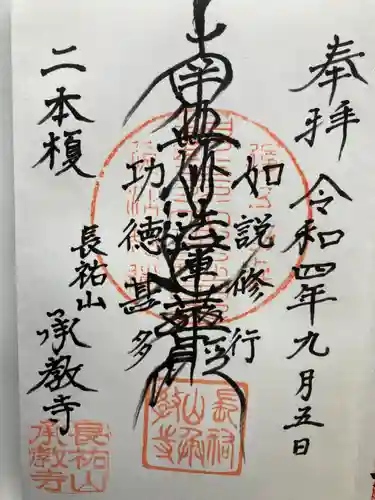 奉拝 令和四年九月五日
如説修行
南無妙法蓮華経
功徳甚多
二本榎
長祐山 承教寺
長祐山承教寺
長祐山承教寺